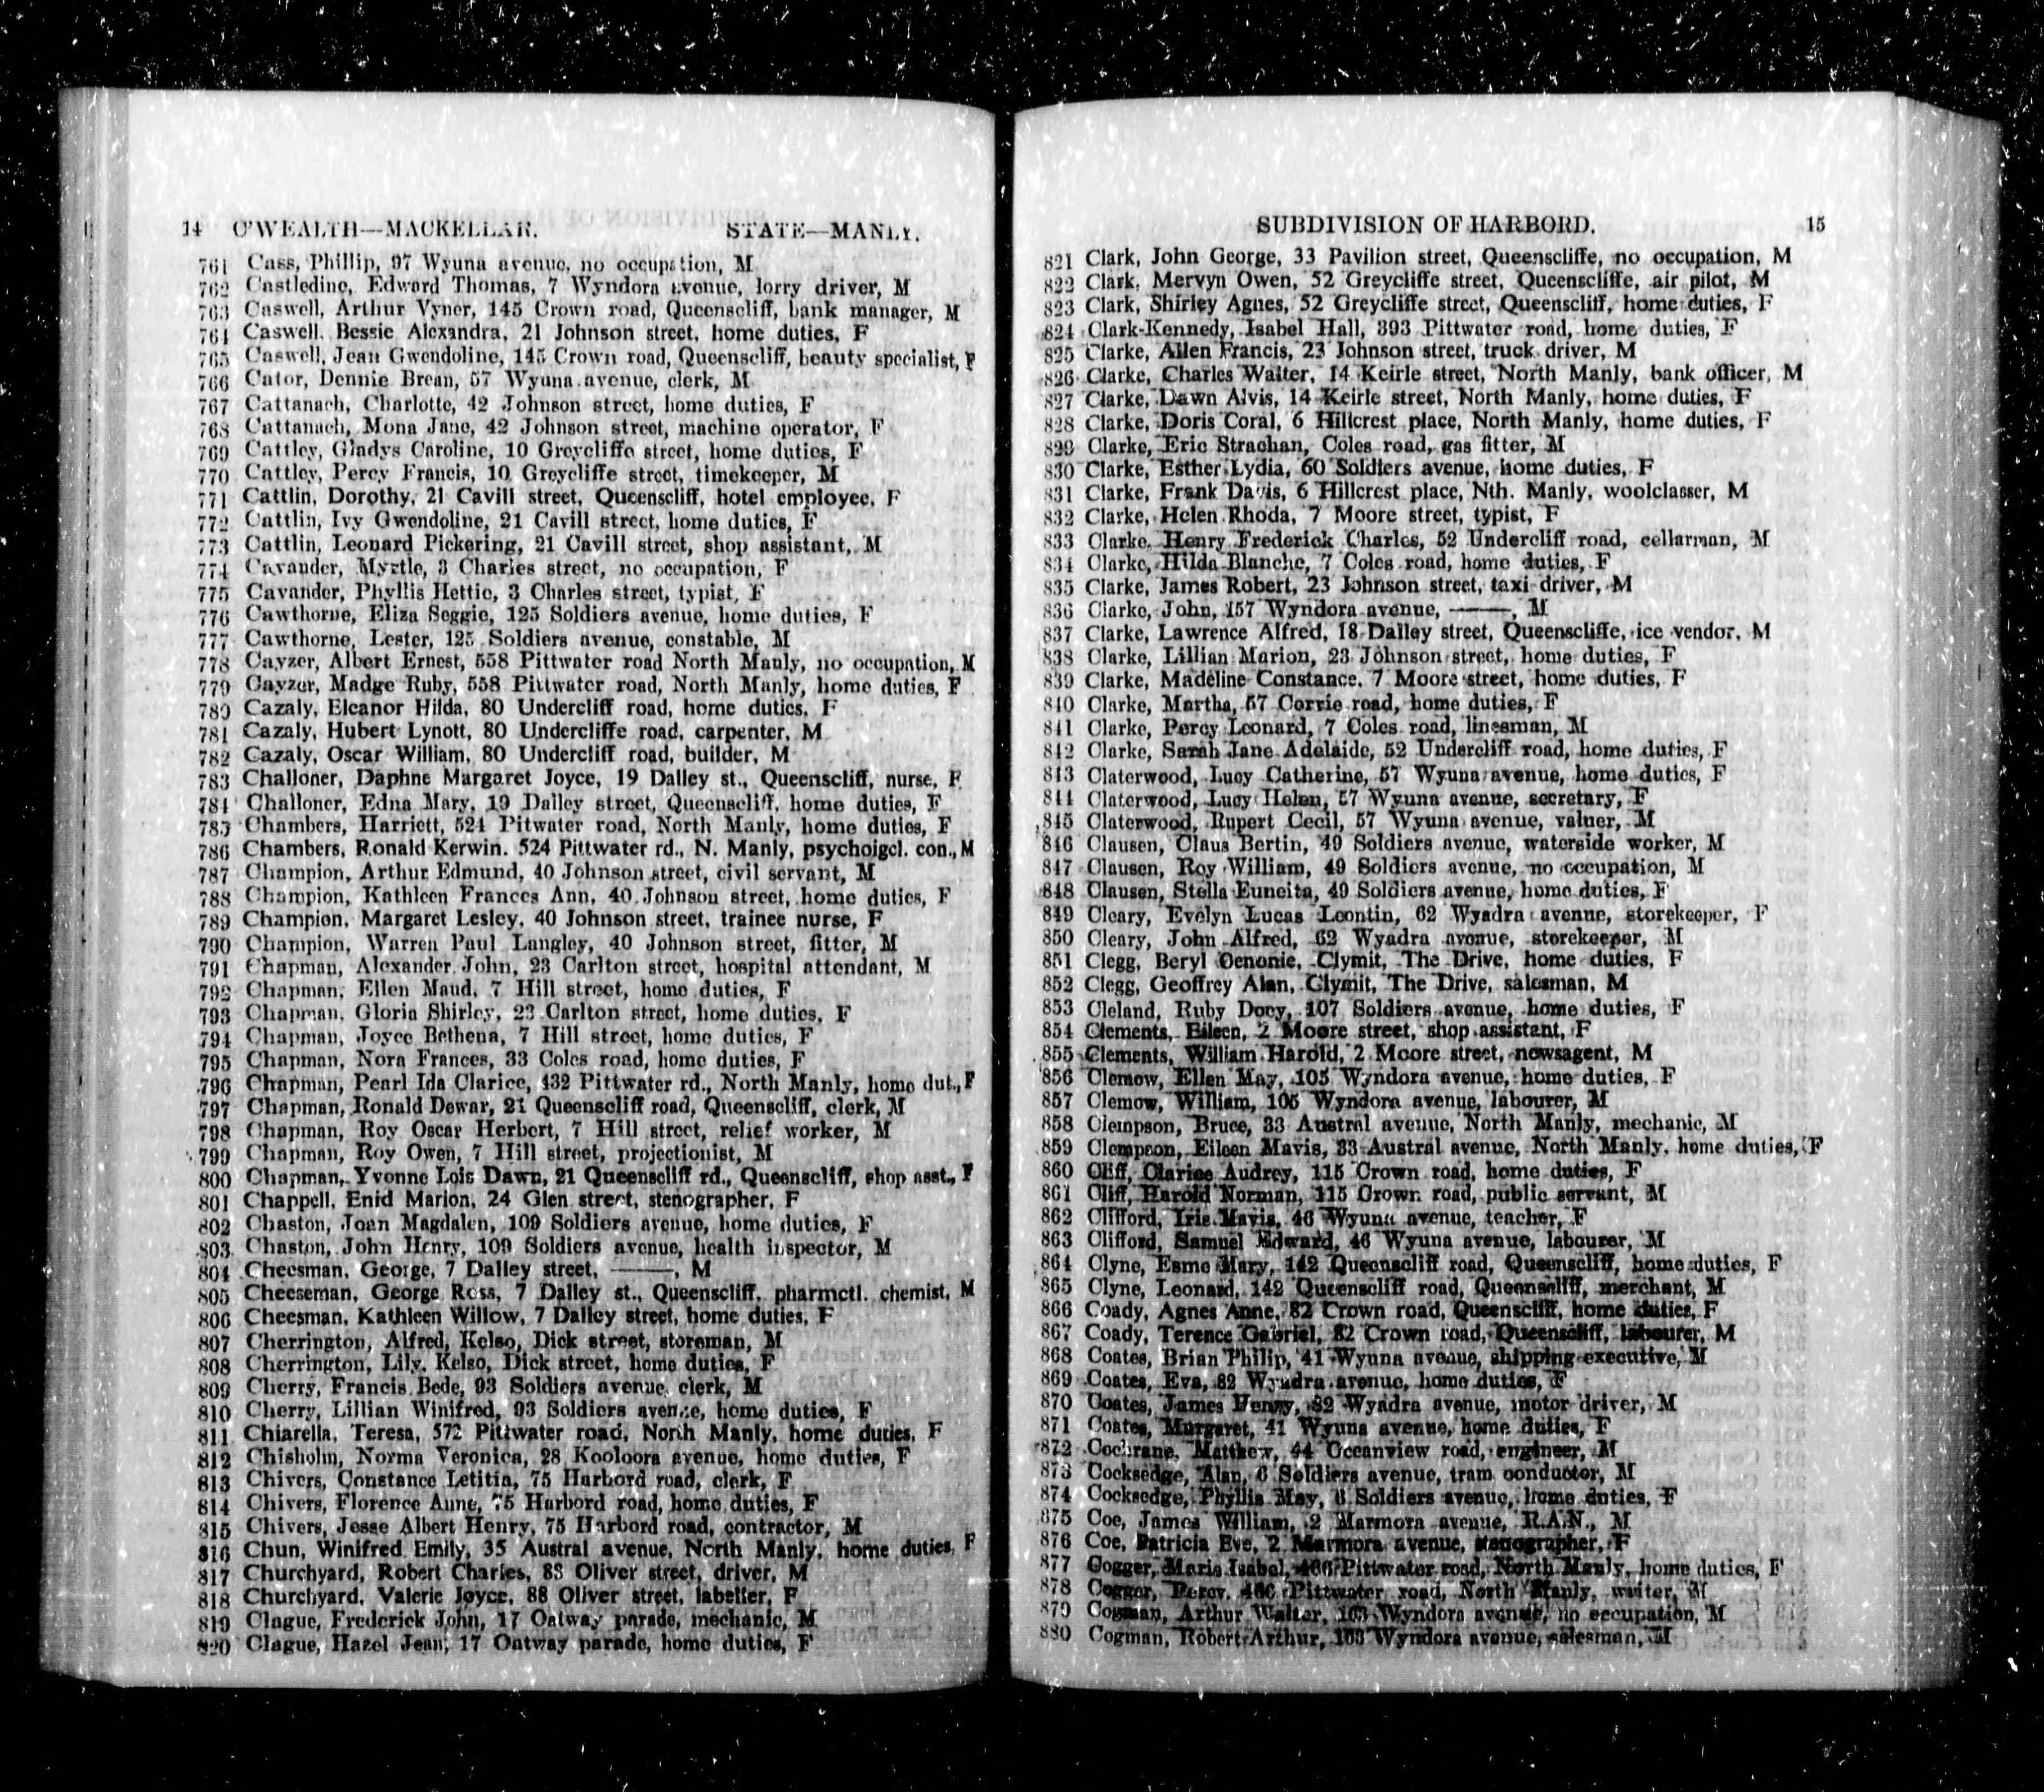 14 C'WEALTH—MACKELLAR. STATE—MANLY.
761 Cass, Phillip, 97 Wyuna avenue, no occupation, M
762 Castledine, Edward Thomas, 7 Wyndora avenue, lorry driver, M
763 Caswell, Arthur Vyner, 145 Crown road, Queenscliff, bank manager, M
764 Caswell, Bessie Alexandra, 21 Johnson street, home duties, F
765 Caswell, Jean Gwendoline, 145 Crown road, Queenscliff, beauty specialist, F
766 Cator, Dennie Brean, 57 Wyuna avenue, clerk, M
767 Cattanach, Charlotte, 42 Johnson street, home duties, F
768 Cattanach, Mona Jane, 42 Johnson street, machine operator, F
769 Cattley, Gladys Caroline, 10 Greycliffe street, home duties, F
770 Cattley, Percy Francis, 10 Greycliffe street, timekeeper, M
771 Cattlin, Dorothy, 21 Cavill street, Queenscliff, hotel employee, F
772 Cattlin, Ivy Gwendoline, 21 Cavill street, home duties, F
773 Cattlin, Leonard Pickering, 21 Cavill street, shop assistant, M
774 Cavander, Myrtle, 3 Charles street, no occupation, F
775 Cavander, Phyllis Hettie, 3 Charles street, typist, F
776 Cawthorne, Eliza Seggie, 125 Soldiers avenue, home duties, F
777 Cawthorne, Lester, 125 Soldiers avenue, constable, M
778 Cayzer, Albert Ernest, 558 Pittwater road North Manly, no occupation, M
779 Cayzer, Madge Ruby, 558 Pittwater road, North Manly, home duties, F
780 Cazaly, Eleanor Hilda, 80 Undercliff road, home duties, F
781 Cazaly, Hubert Lynott, 80 Undercliffe road, carpenter, M
782 Cazaly, Oscar William, 80 Undercliff road, builder, M
783 Challoner, Daphne Margaret Joyce, 19 Dalley st., Queenscliff, nurse, F
784 Challoner, Edna Mary, 19 Dalley street, Queenscliff, home duties, F
785 Chambers, Harriett, 524 Pitwater road, North Manly, home duties, F
786 Chambers, Ronald Kerwin. 524 Pittwater rd., N. Manly, psychoigcl. con., M
787 Champion, Arthur Edmund, 40 Johnson street, civil servant, M
788 Champion, Kathleen Frances Ann, 40 Johnson street, home duties, F
789 Champion, Margaret Lesley, 40 Johnson street, trainee nurse, F
790 Champion, Warren Paul Langley, 40 Johnson street, fitter, M
791 Chapman, Alexander John, 23 Carlton street, hospital attendant, M
792 Chapman, Ellen Maud, 7 Hill street, home duties, F
793 Chapman, Gloria Shirley, 23 Carlton street, home duties, F
794 Chapman, Joyce Bethena, 7 Hill street, home duties, F
795 Chapman, Nora Frances, 33 Coles road, home duties, F
796 Chapman, Pearl Ida Clarice, 432 Pittwater rd., North Manly, home dut., F
797 Chapman, Ronald Dewar, 21 Queenscliff road, Queenscliff, clerk, M
798 Chapman, Roy Oscar Herbert, 7 Hill street, relief worker, M
799 Chapman, Roy Owen, 7 Hill street, projectionist, M
800 Chapman, Yvonne Lois Dawn, 21 Queenscliff rd., Queenscliff, shop asst., F
801 Chappell, Enid Marion, 24 Glen street, stenographer, F
802 Chaston, Joan Magdalen, 109 Soldiers avenue, home duties, F
803 Chaston, John Henry, 109 Soldiers avenue, health inspector, M
804 Cheesman, George, 7 Dalley street, ———, M
805 Cheeseman, George Ross, 7 Dalley st., Queenscliff, pharmctl. chemist, M
806 Cheesman, Kathleen Willow, 7 Dalley street, home duties, F
807 Cherrington, Alfred, Kelso, Dick street, storeman, M
808 Cherrington, Lily, Kelso, Dick street, home duties, F
809 Cherry, Francis Bede, 93 Soldiers avenue, clerk, M
810 Cherry, Lillian Winifred, 93 Soldiers avenue, home duties, F
811 Chiarella, Teresa, 572 Pittwater road, North Manly, home duties, F
812 Chisholm, Norma Veronica, 28 Kooloora avenue, home duties, F
813 Chivers, Constance Letitia, 75 Harbord road, clerk, F
814 Chivers, Florence Anne, 75 Harbord road, home duties, F
815 Chivers, Jesse Albert Henry, 75 Harbord road, contractor, M
816 Chun, Winifred Emily, 35 Austral avenue, North Manly, home duties, F
817 Churchyard, Robert Charles, 88 Oliver street, driver, M
818 Churchyard, Valerie Joyce, 88 Oliver street, labeller, F
819 Clague, Frederick John, 17 Oatway parade, mechanic, M
820 Clague, Hazel Jean, 17 Oatway parade, home duties, F
SUBDIVISION OF HARBORD. 15
821 Clark, John George, 33 Pavilion street, Queenscliffe, no occupation, M
822 Clark, Mervyn Owen, 52 Greycliffe street, Queenscliffe, air pilot, M
823 Clark, Shirley Agnes, 52 Greycliffe street, Queenscliff, home duties, F
824 Clark-Kennedy, Isabel Hall, 393 Pittwater road, home duties, F
825 Clarke, Allen Francis, 23 Johnson street, truck driver, M
826 Clarke, Charles Walter, 14 Keirle street, North Manly, bank officer, M
827 Clarke, Dawn Alvis, 14 Keirle street, North Manly, home duties, F
828 Clarke, Doris Coral, 6 Hillcrest place, North Manly, home duties, F
829 Clarke, Eric Strachan, Coles road, gas fitter, M
830 Clarke, Esther Lydia, 60 Soldiers avenue, home duties, F
831 Clarke, Frank Davis, 6 Hillcrest place, Nth. Manly, woolclasser, M
832 Clarke, Helen Rhoda, 7 Moore street, typist, F
833 Clarke, Henry Frederick Charles, 52 Undercliff road, cellarman, M
834 Clarke, Hilda Blanche, 7 Coles road, home duties, F
835 Clarke, James Robert, 23 Johnson street, taxi driver, M
836 Clarke, John, 157 Wyndora avenue, ———, M
837 Clarke, Lawrence Alfred, 18 Dalley street, Queenscliffe, ice vendor, M
838 Clarke, Lillian Marion, 23 Johnson street, home duties, F
839 Clarke, Madeline Constance, 7 Moore street, home duties, F
840 Clarke, Martha, 57 Corrie road, home duties, F
841 Clarke, Percy Leonard, 7 Coles road, linesman, M
842 Clarke, Sarah Jane Adelaide, 52 Undercliff road, home duties, F
843 Claterwood, Lucy Catherine, 57 Wyuna avenue, home duties, F
844 Claterwood, Lucy Helen, 57 Wyuna avenue, secretary, F
845 Claterwood, Rupert Cecil, 57 Wyuna avenue, valuer, M
846 Clausen, Claus Bertin, 49 Soldiers avenue, waterside worker, M
847 Clausen, Roy William, 49 Soldiers avenue, no occupation, M
848 Clausen, Stella Euneita, 49 Soldiers avenue, home duties, F
849 Cleary, Evelyn Lucas Leontin, 62 Wyadra avenue, storekeeper, F
850 Cleary, John Alfred, 62 Wyadra avenue, storekeeper, M
851 Clegg, Beryl Oenonie, Clymit, The Drive, home duties, F
852 Clegg, Geoffrey Alan, Clymit, The Drive, salesman, M
853 Cleland, Ruby Docy, 107 Soldiers avenue, home duties, F
854 Clements, Eileen, 2 Moore street, shop assistant, F
855 Clements, William Harold, 2 Moore street, newsagent, M
856 Clemow, Ellen May, 105 Wyndora avenue, home duties, F
857 Clemow, William, 105 Wyndora avenue, labourer, M
858 Clempson, Bruce, 33 Austral avenue, North Manly, mechanic, M
859 Clempson, Eileen Mavis, 33 Austral avenue, North Manly, home duties, F
860 Cliff, Clarice Audrey, 115 Crown road, home duties, F
861 Cliff, Harold Norman, 115 Crown road, public servant, M
862 Clifford, Iris Mavis, 46 Wyuna avenue, teacher, F
863 Clifford, Samuel Edward, 46 Wyuna avenue, labourer, M
864 Clyne, Esme Mary, 142 Queenscliff road, Queenscliff, home duties, F
865 Clyne, Leonard, 142 Queenscliff road, Queenscliff, merchant, M
866 Coady, Agnes Anne, 82 Crown road, Queenscliff, home duties, F
867 Coady, Terence Gabriel, 82 Crown road, Queenscliff, labourer, M
868 Coates, Brian Philip, 41 Wyuna avenue, shipping executive, M
869 Coates, Eva, 82 Wyadra avenue, home duties, F
870 Coates, James Henry, 82 Wyadra avenue, motor driver, M
871 Coates, Margaret, 41 Wyuna avenue, home duties, F
872 Cochrane, Matthew, 44 Oceanview road, engineer, M
873 Cocksedge, Alan, 6 Soldiers avenue, tram conductor, M
874 Cocksedge, Phyllis May, 6 Soldiers avenue, home duties, F
875 Coe, James William, 2 Marmora avenue, R.A.N., M
876 Coe, Patricia Eve, 2 Marmora avenue, stenographer, F
877 Cogger, Marie Isabel, 466 Pittwater road, North Manly, home duties, F
878 Cogger, Percy, 466 Pittwater road, North Manly, waiter, M
879 Cogman, Arthur Walter, 163 Wyndora avenue, no occupation, M
880 Cogman, Robert Arthur, 163 Wyndora avenue, salesman, M